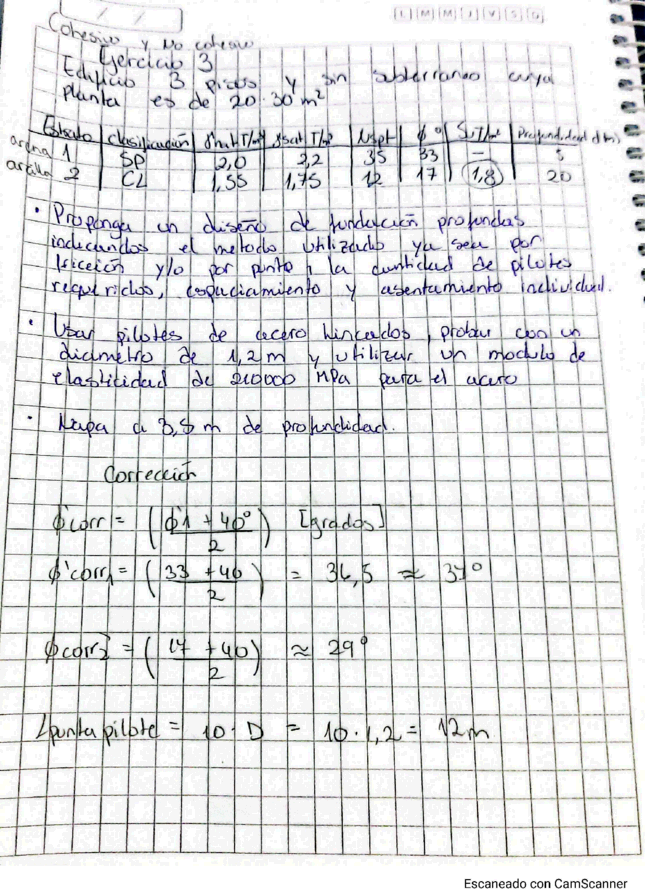 L M M J V S D
Cohesivo y No cohesivo
Ejercicio 3
Edificio 3 pisos y sin subterraneo cuya
planta es de 20·30 m²
Estrato | Clasificación | γhum T/m³ | γsat T/m³ | Nspt | ϕ° | Su T/m² | Profundidad (m)
arena 1 | SP | 2,0 | 2,2 | 35 | 33 | – | 5
arcilla 2 | CL | 1,55 | 1,75 | 12 | 17 | 1,8 | 20
· Proponga un diseño de fundación profundas
indicandos el metodo utilizado ya sea por
fricción y/o por punta, la cantidad de pilotes
requeridos, espaciamiento y asentamiento individual.
· Usar pilotes de acero hincados, probar con un
diametro de 1,2 m y utilizar un modulo de
elasticidad de 210000 MPa para el acero
· Napa a 3,5 m de profundidad.
Corrección
ϕ'corr = (ϕ'1 + 40° / 2) [grados]
ϕ'corr1 = (33 + 40 / 2) = 36,5 ≈ 37°
ϕcorr2 = (17 + 40 / 2) ≈ 29°
Lpunta pilote = 10 · D = 10 · 1,2 = 12m
Escaneado con CamScanner